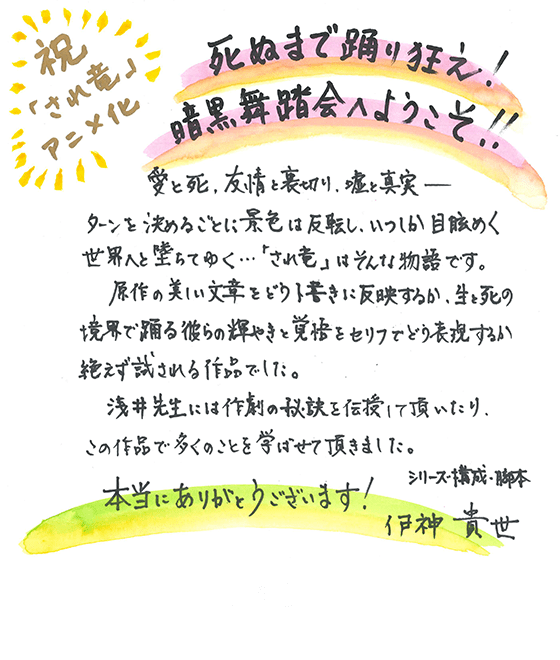 祝
「され竜」
アニメ化
死ぬまで踊り狂え!
暗黒舞踏会へようこそ!!
愛と死、友情と裏切り、嘘と真実―
ターンを決めるごとに景色は反転し、いつしか目眩めく
世界へと墜ちてゆく…「され竜」はそんな物語です。
原作の美しい文章をどうト書きに反映するか、生と死の
境界で踊る彼らの輝やきと覚悟をセリフでどう表現するか
絶えず試される作品でした。
浅井先生には作劇の秘訣を伝授して頂いたり、
この作品で多くのことを学ばせて頂きました。
本当にありがとうございます!
シリーズ構成・脚本
伊神 貴世